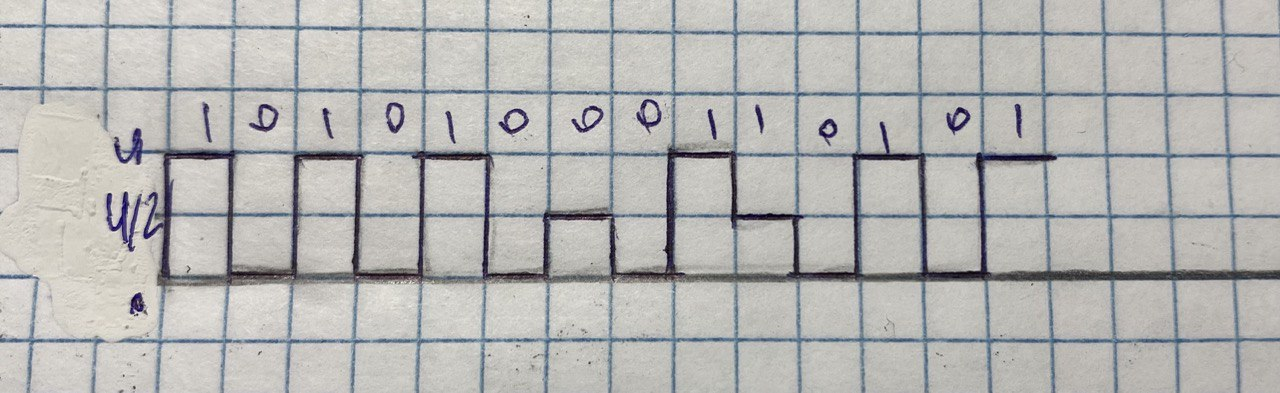 1 0 1 0 1 0 0 0 1 1 0 1 0 1
U
U/2
0